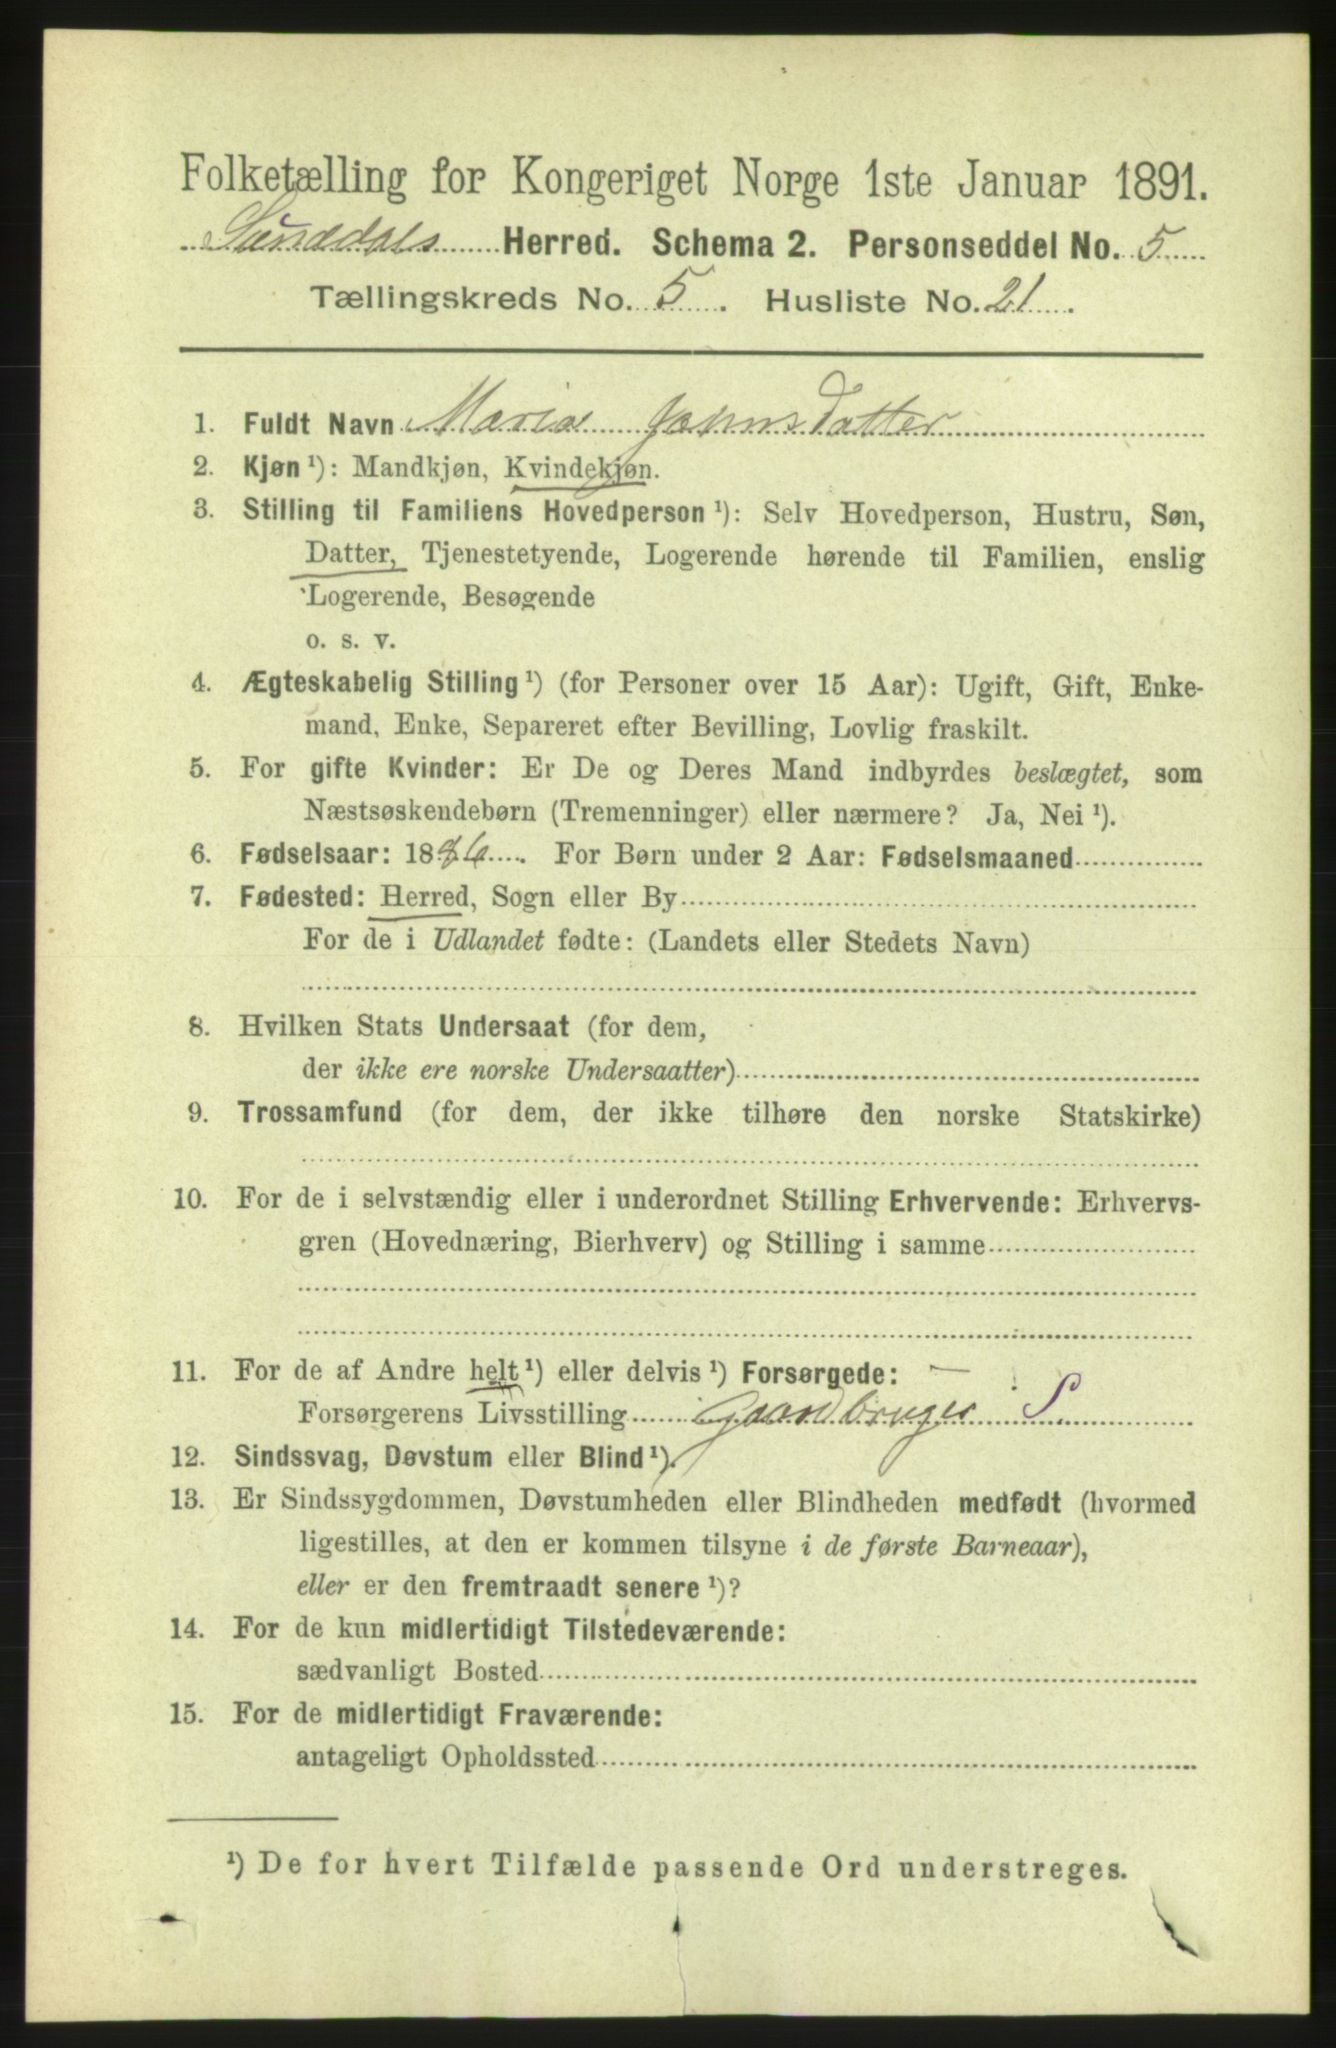 Folketælling for Kongeriget Norge 1ste Januar 1891.
Sunddals Herred. Schema 2. Personseddel No. 5
Tællingskreds No. 5. Husliste No. 21.
1. Fuldt Navn Marie Johnsdatter
2. Kjøn ¹): Mandkjøn, Kvindekjøn.
3. Stilling til Familiens Hovedperson ¹): Selv Hovedperson, Hustru, Søn,
Datter, Tjenestetyende, Logerende hørende til Familien, enslig
Logerende, Besøgende
o. s. v.
4. Ægteskabelig Stilling ¹) (for Personer over 15 Aar): Ugift, Gift, Enke-
mand, Enke, Separeret efter Bevilling, Lovlig fraskilt.
5. For gifte Kvinder: Er De og Deres Mand indbyrdes beslægtet, som
Næstsøskendebørn (Tremenninger) eller nærmere? Ja, Nei ¹).
6. Fødselsaar: 1886. For Børn under 2 Aar: Fødselsmaaned
7. Fødested: Herred, Sogn eller By
For de i Udlandet fødte: (Landets eller Stedets Navn)
8. Hvilken Stats Undersaat (for dem,
der ikke ere norske Undersaatter)
9. Trossamfund (for dem, der ikke tilhøre den norske Statskirke)
10. For de i selvstændig eller i underordnet Stilling Erhvervende: Erhvervs-
gren (Hovednæring, Bierhverv) og Stilling i samme
11. For de af Andre helt ¹) eller delvis ¹) Forsørgede:
Forsørgerens Livsstilling Gaardbruger S.
12. Sindssvag, Døvstum eller Blind ¹).
13. Er Sindssygdommen, Døvstumheden eller Blindheden medfødt (hvormed
ligestilles, at den er kommen tilsyne i de første Barneaar),
eller er den fremtraadt senere ¹)?
14. For de kun midlertidigt Tilstedeværende:
sædvanligt Bosted
15. For de midlertidigt Fraværende:
antageligt Opholdssted
¹) De for hvert Tilfælde passende Ord understreges.